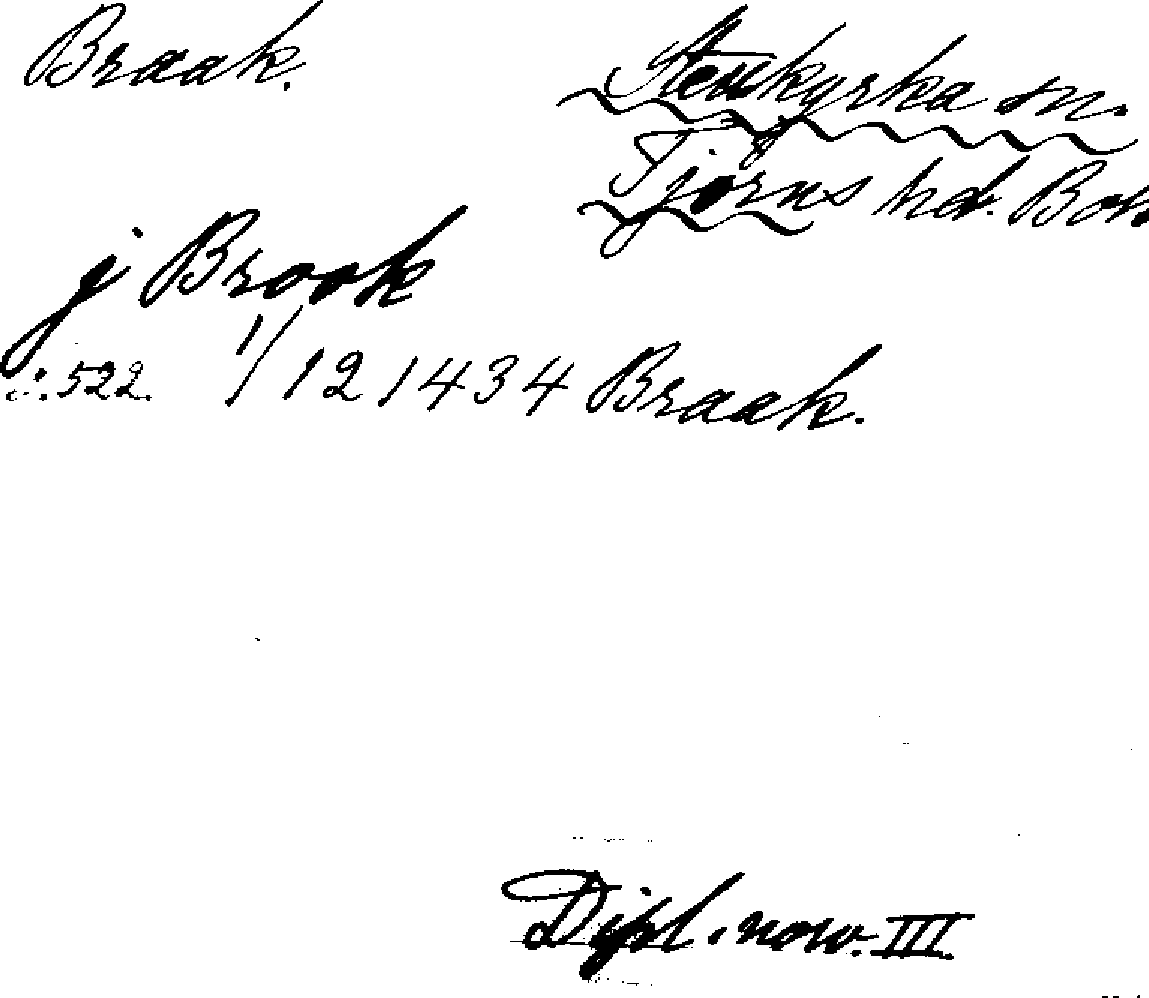 Braak.
Stenkyrka sn.
Tjörns hd. Boh
j Brook
s: 522. 1/12 1434 Braak.
Dipl. norv. III.